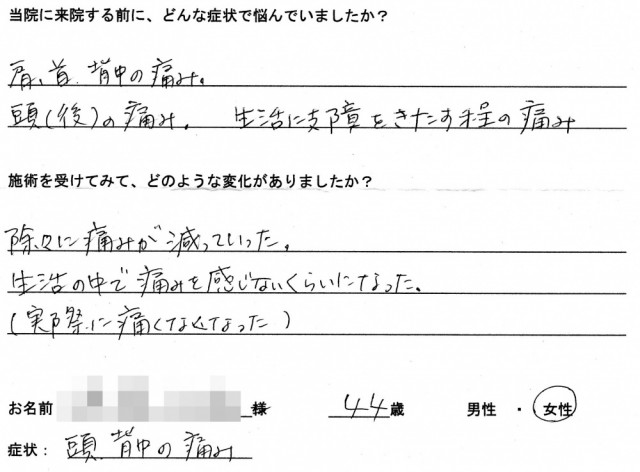 当院に来院する前に、どんな症状で悩んでいましたか？
肩、首、背中の痛み。
頭(後)の痛み。 生活に支障をきたす程の痛み
施術を受けてみて、どのような変化がありましたか？
除々に痛みが減っていった。
生活の中で痛みを感じないくらいになった。
(実際に痛くなくなった)
お名前 様 44歳 男性 ・ 女性
症状： 頭 背中の痛み